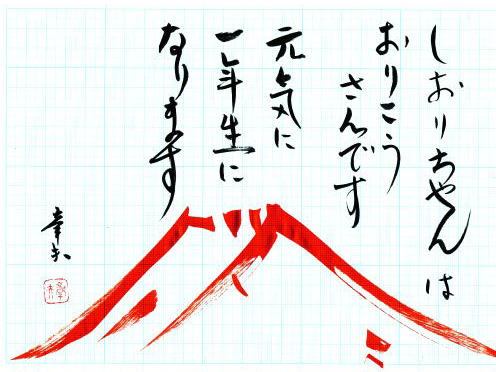 しおりちゃんは
おりこう
さんです
元気に
一年生に
なります
幸夫